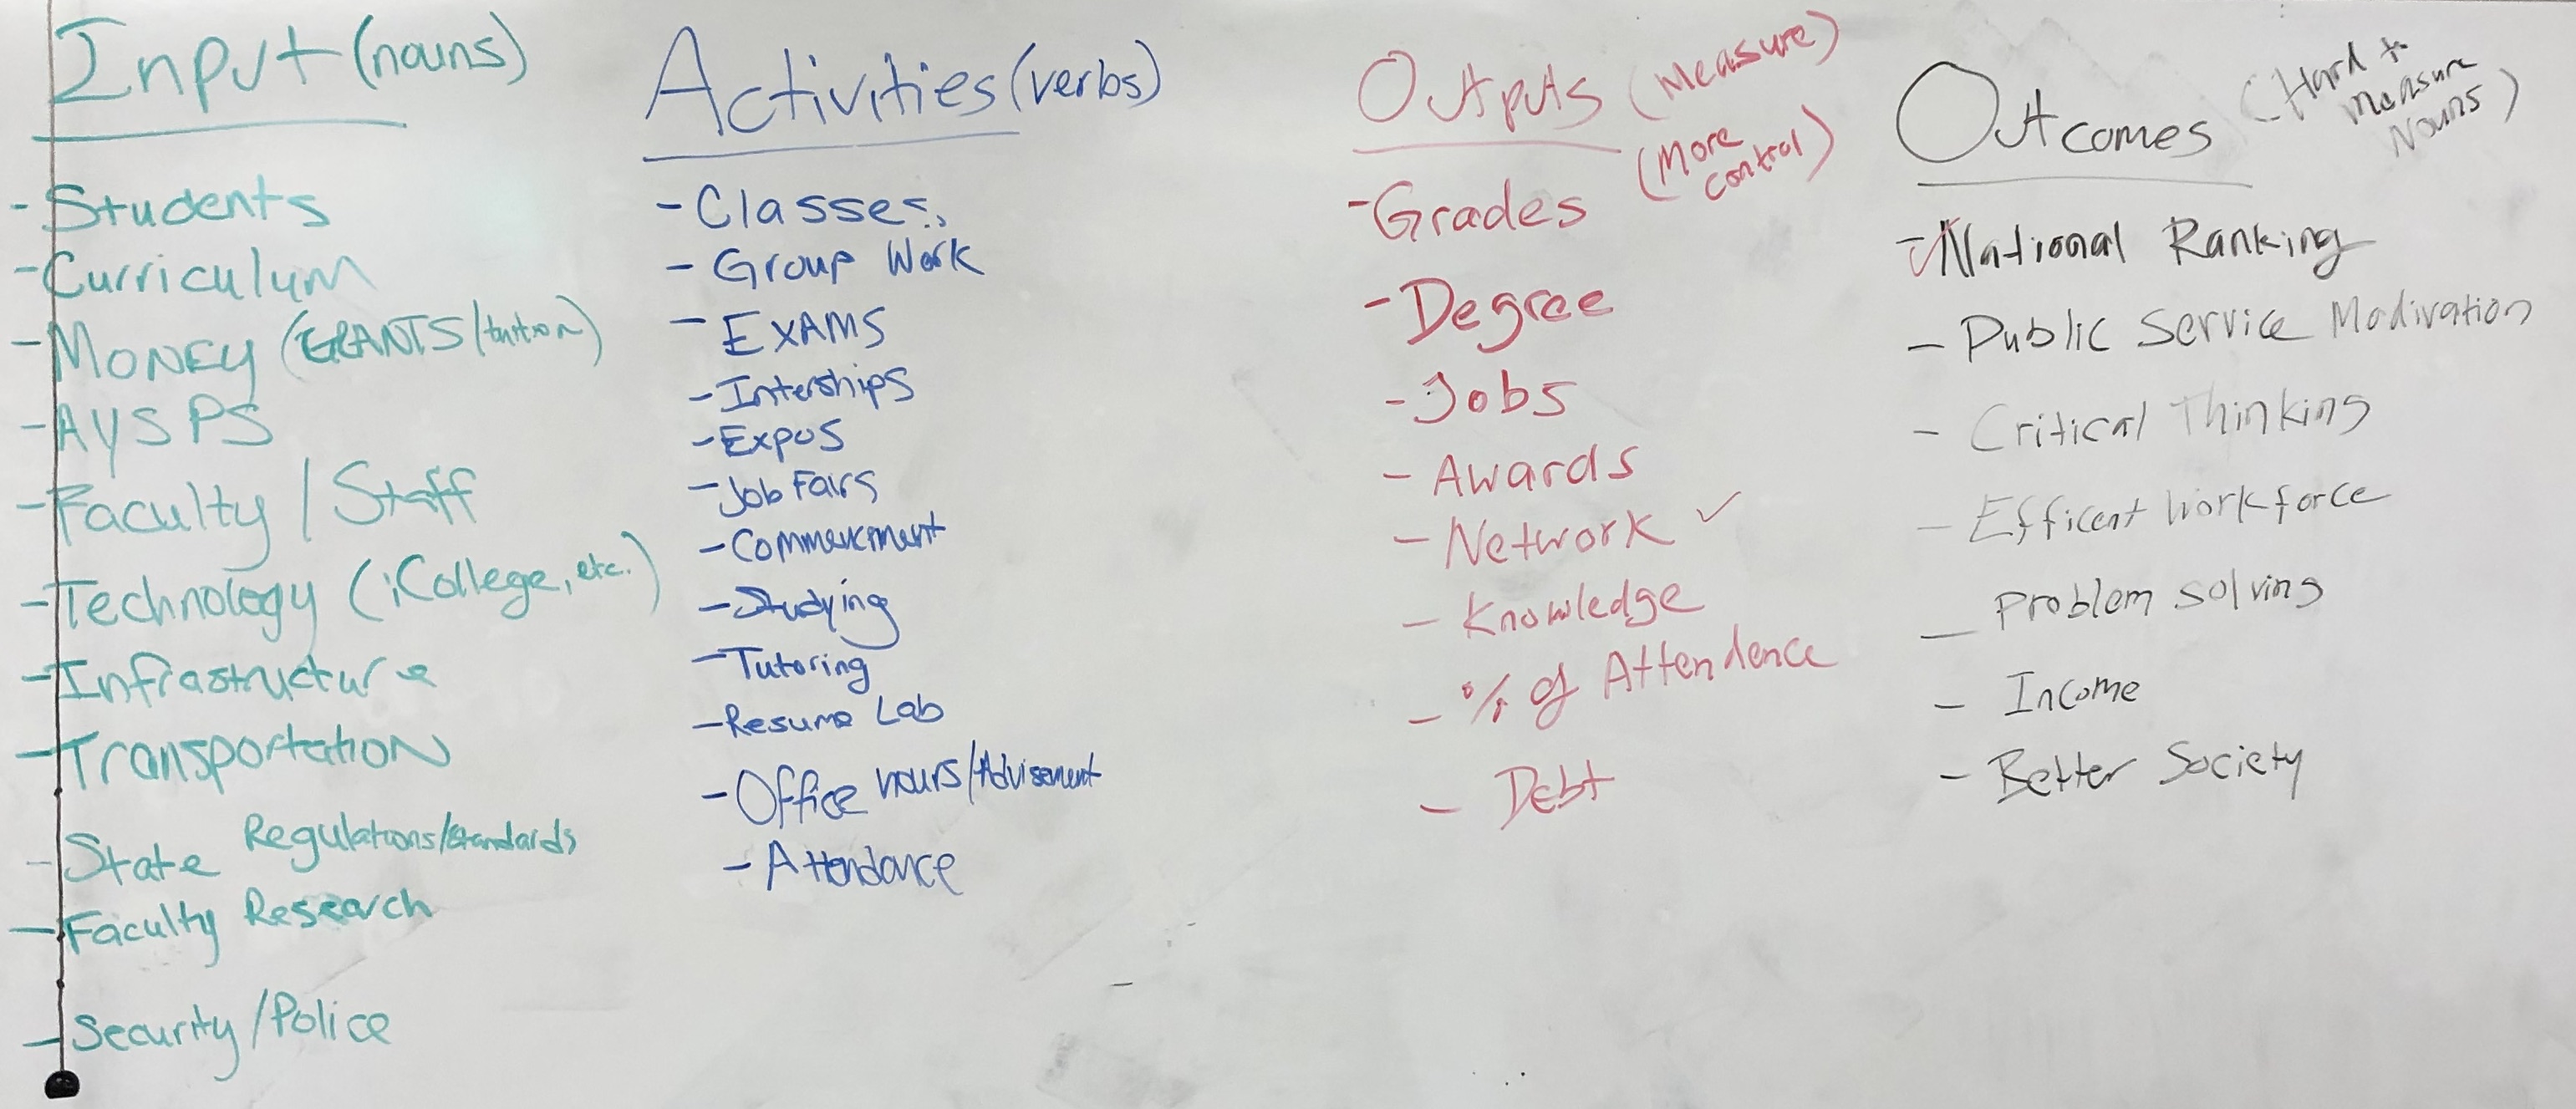 Input (nouns)
- Students
- Curriculum
- Money (GRANTS/tuition)
- AYSPS
- Faculty / Staff
- Technology (iCollege, etc.)
- Infrastructure
- Transportation
- State Regulations/standards
- Faculty Research
- Security/Police
Activities (verbs)
- Classes,
- Group Work
- EXAMS
- Interships
- Expos
- Job Fairs
- Commencment
- Studying
- Tutoring
- Resume Lab
- Office hours/Advisement
- Attendance
Outputs (Measure)
(More
control)
- Grades
- Degree
- Jobs
- Awards
- Network ✓
- Knowledge
- % of Attendence
- Debt
Outcomes (Hard to
measure
Nouns)
- National Ranking
- Public Service Modivation
- Critical Thinking
- Efficent Workforce
- Problem solving
- Income
- Better Society